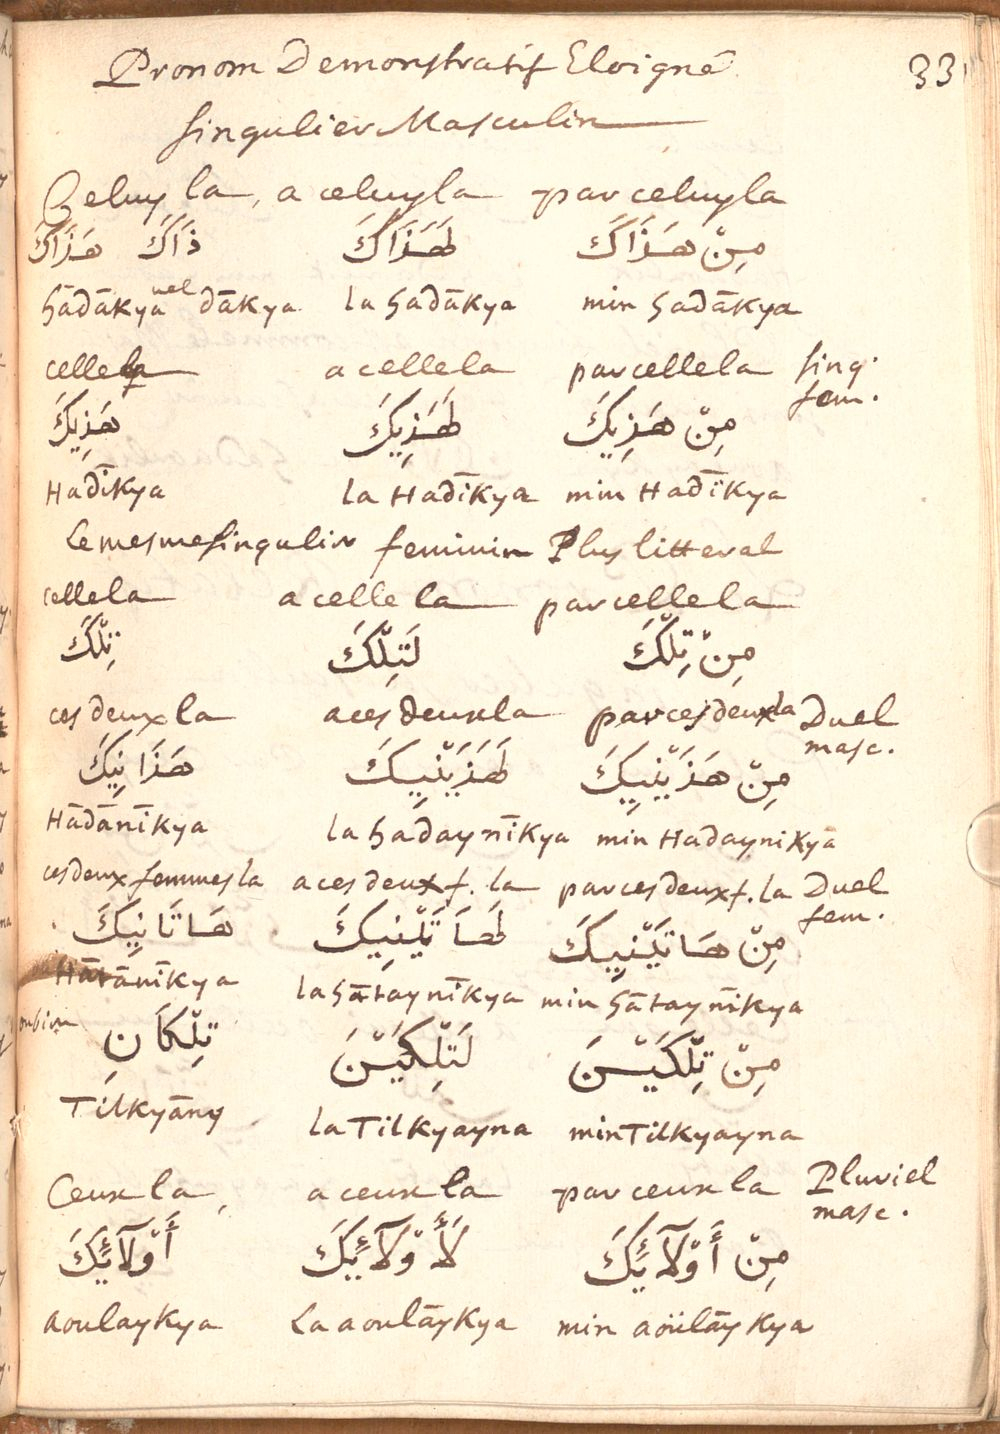 33
Pronom Demonstratif Eloigné
singulier Masculin
Celuy la, a celuyla par celuyla
هَذَاكَ ذَاكَ لهَذَاكَ مِنْ هَذَاكَ
hādākya uel dākya la hadākya min hadākya
cellela a cellela parcellela sing. fem.
هَذِيكَ لهَذِيكَ مِنْ هَذِيكَ
Hadīkya la Hadīkya min Hadīkya
Le mesme singulier feminin Plus litteral
cellela a celle la parcellela
تِلْكَ لَتِلْكَ مِنْ تِلْكَ
ces deux la a ces deux la par ces deux la Duel masc.
هَذَانِيكَ لهَذَيْنِيكَ مِنْ هَذَيْنِيكَ
Hādānīkya la hadaynīkya min Hadaynikya
ces deux femmes la a ces deux f. la par ces deux f. la Duel fem.
هَاتَانِيكَ لهَاتَيْنِيكَ مِنْ هَاتَيْنِيكَ
Hātānīkya la hātaynīkya min hātaynīkya
oubien تِلْكَانِ لَتِلْكَيْنَ مِنْ تِلْكَيْنَ
Tilkyāny la Tilkyayna min Tilkyayna
Ceux la, a ceux la par ceux la Pluriel masc.
أَوْلَائِكَ لَأَوْلَائِكَ مِنْ أَوْلَائِكَ
aoulaykya La aoulāykya min aoulāykya